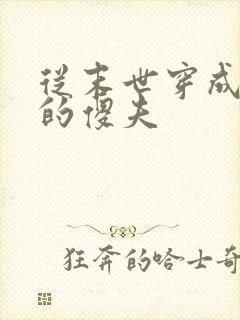 从末世穿成
的傻夫
狂奔的哈士奇